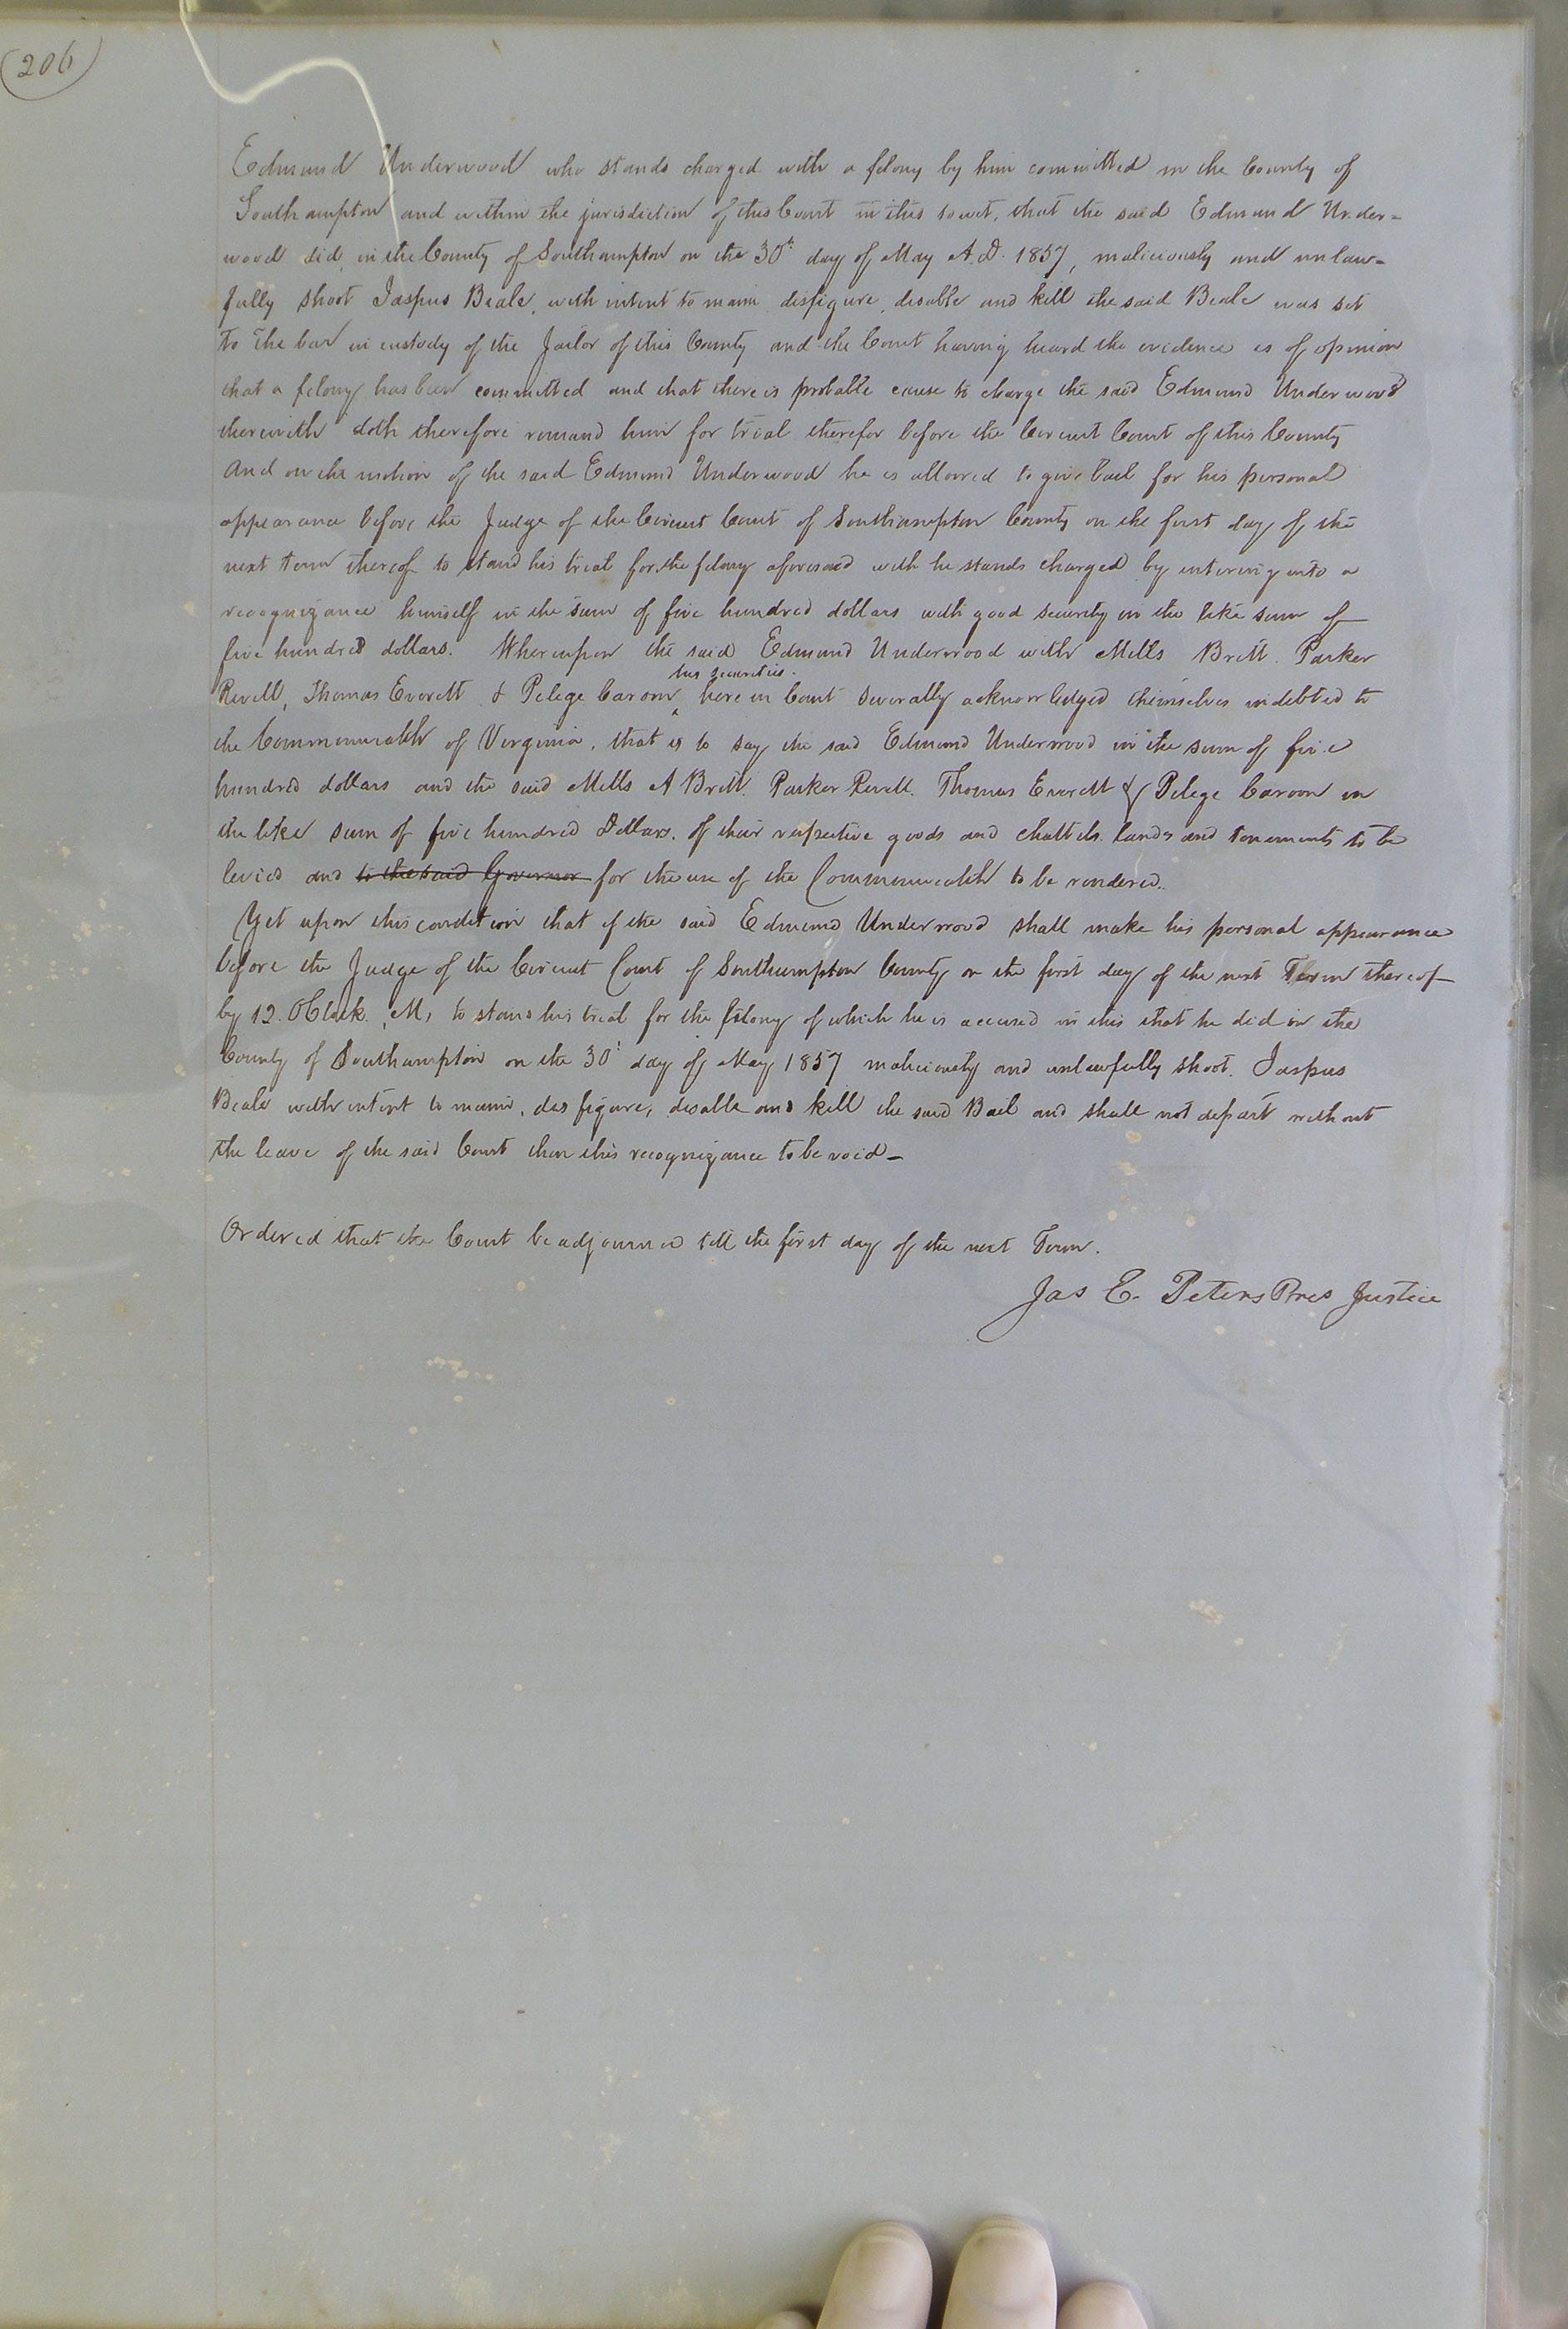 206
Edmund Underwood who stands charged with a felony by him committed in the County of
Southampton and within the jurisdiction of this Court in this towit, that the said Edmund Under=
wood did, in the County of Southampton on the 30th day of May A.D. 1857, maliciously and unlaw=
fully shoot Jaspus Beale, with intent to maim disfigure, disable and kill the said Beale was set
to the bar in custody of the Jailor of this County and the Court having heard the evidence is of opinion
that a felony has been committed and that there is probable cause to charge the said Edmund Underwood
therewith doth therefore remand him for trial therefor before the Circuit Court of this County
And on the motion of the said Edmund Underwood he is allowed to give bail for his personal
appearance before the Judge of the Circuit Court of Southampton County on the first day of the
next term thereof to stand his trial for the felony aforesaid with he stands charged by entering into a
recognizance himself in the sum of five hundred dollars with good security in the like sum of
five hundred dollars. Whereupon the said Edmund Underwood with Mills Britt. Parker
his securities.
Revell, Thomas Everett & Pelege Caroon, here in Court severally acknowledged themselves indebted to
the Commonwealth of Virginia, that is to say the said Edmund Underwood in the sum of five
hundred dollars and the said Mills A Britt. Parker Revell. Thomas Everett & Pelege Caroon in
the like sum of five hundred Dollars. of their respective goods and chattels. lands and tenements to be
levied and to the said Governor for the use of the Commonwealth to be rendered.
Yet upon this condition that if the said Edmund Underwood shall make his personal appearance
before the Judge of the Circuit Court of Southampton County on the first day of the next Term thereof
by 12. OClock. M, to stand his trial for the felony of which he is accused in this that he did in the
County of Southampton on the 30t day of May 1857 maliciously and unlawfully shoot. Jaspus
Beale with intent to maim, disfigure, disable and kill the said Bail and shall not depart without
the leave of the said Court then this recognizance to be void_
Ordered that the Court be adjourned till the first day of the next Term.
Jas E. Peters Pres Justice